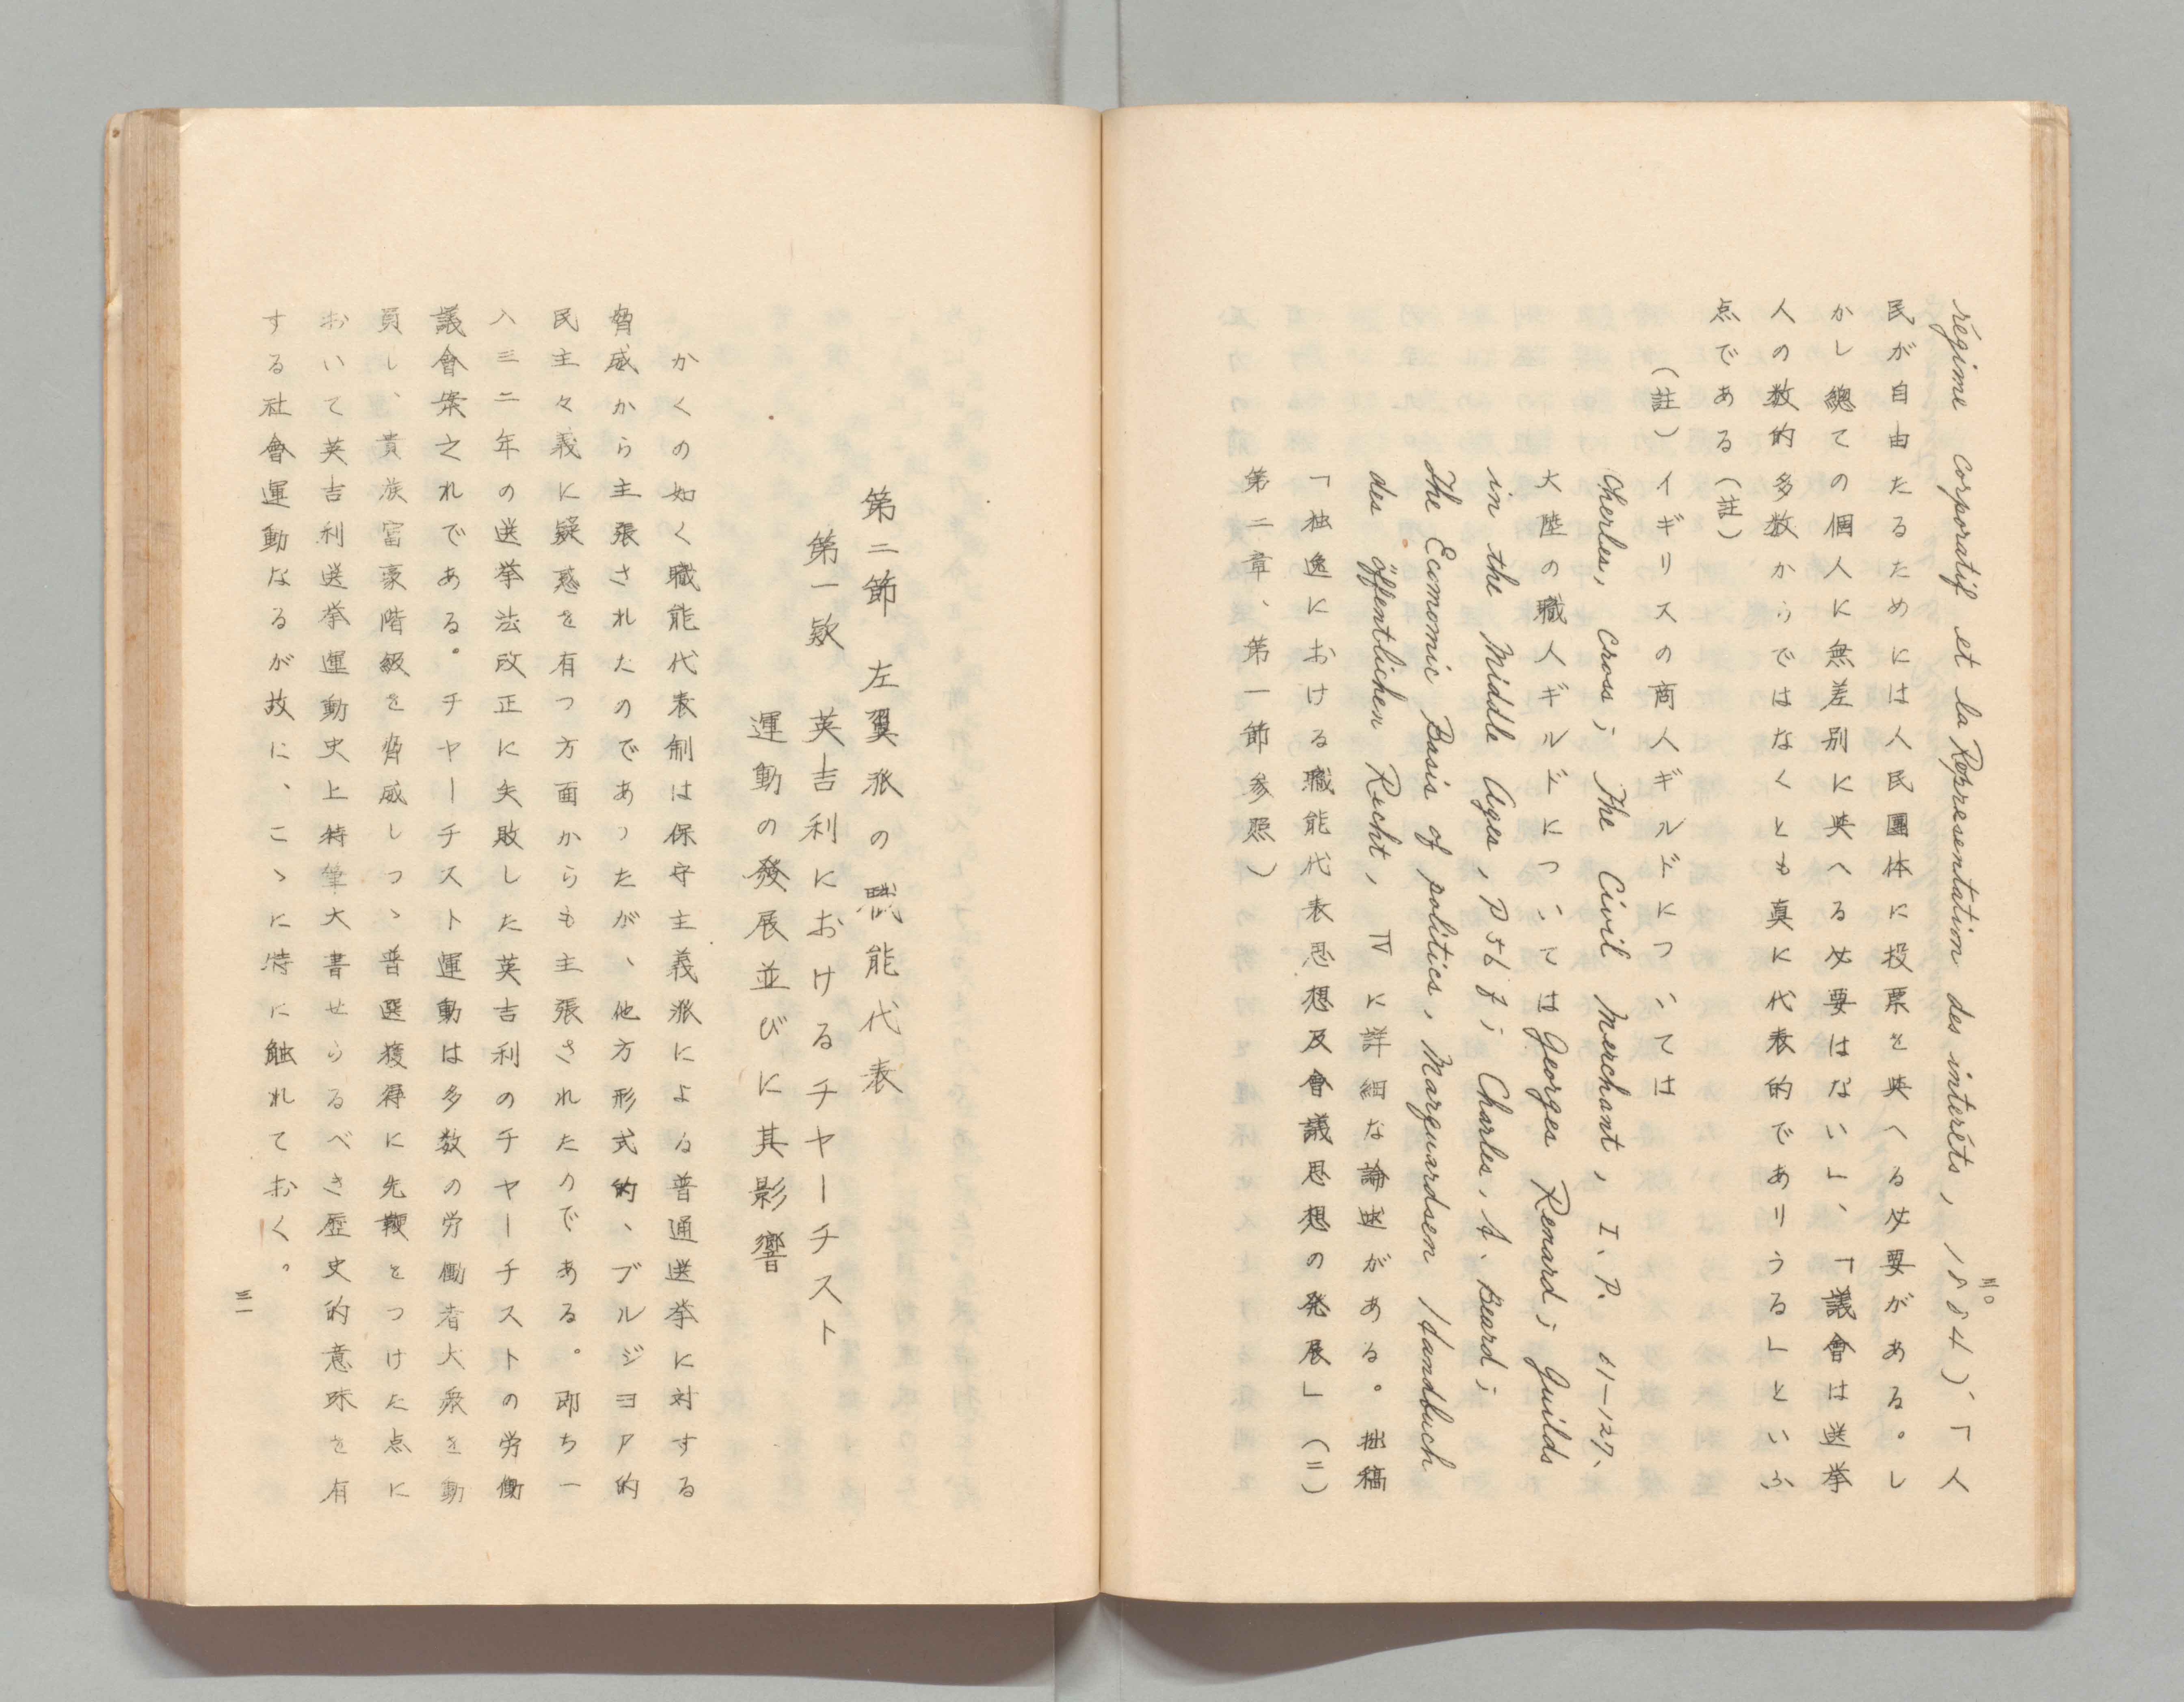 régime corporatif et la Représentation des intérêts, 1884)、「人
民が自由たるためには人民團体に投票を與へる必要がある。し
かし總ての個人に無差別に與へる必要はない」、「議會は選挙
人の数的多数からではなくとも真に代表的でありうる」といふ
点である(註)
(註) イギリスの商人ギルドについては
Cherles, Cross; The Civil Merchant, I、P. 61—127、
大陸の職人ギルドについては Georges Renard; Guilds
in the Middle Ages, P 56 f; Charles, A. Beard;
The Ecomomic Basis of politics, Marguardsen Handbuch
des öffentlichen Recht, IV に詳細な論述がある。拙稿
「独逸における職能代表思想及會議思想の発展」(二)
第二章、第一節参照)
三〇
第二節 左翼派の職能代表
第一款 英吉利におけるチヤーチスト
運動の發展並びに其影響
かくの如く職能代表制は保守主義派による普通選挙に対する
脅威から主張されたのであつたが、他方形式的、ブルジヨア的
民主々義に疑惑を有つ方面からも主張されたのである。即ち一
八三二年の選挙法改正に失敗した英吉利のチヤーチストの労働
議會案之れである。チヤーチスト運動は多数の労働者大衆を動
員し、貴族富豪階級を脅威しつゝ普選獲得に先鞭をつけた点に
おいて英吉利選挙運動史上特筆大書せらるべき歴史的意味を有
する社會運動なるが故に、こゝに特に触れておく。
三一